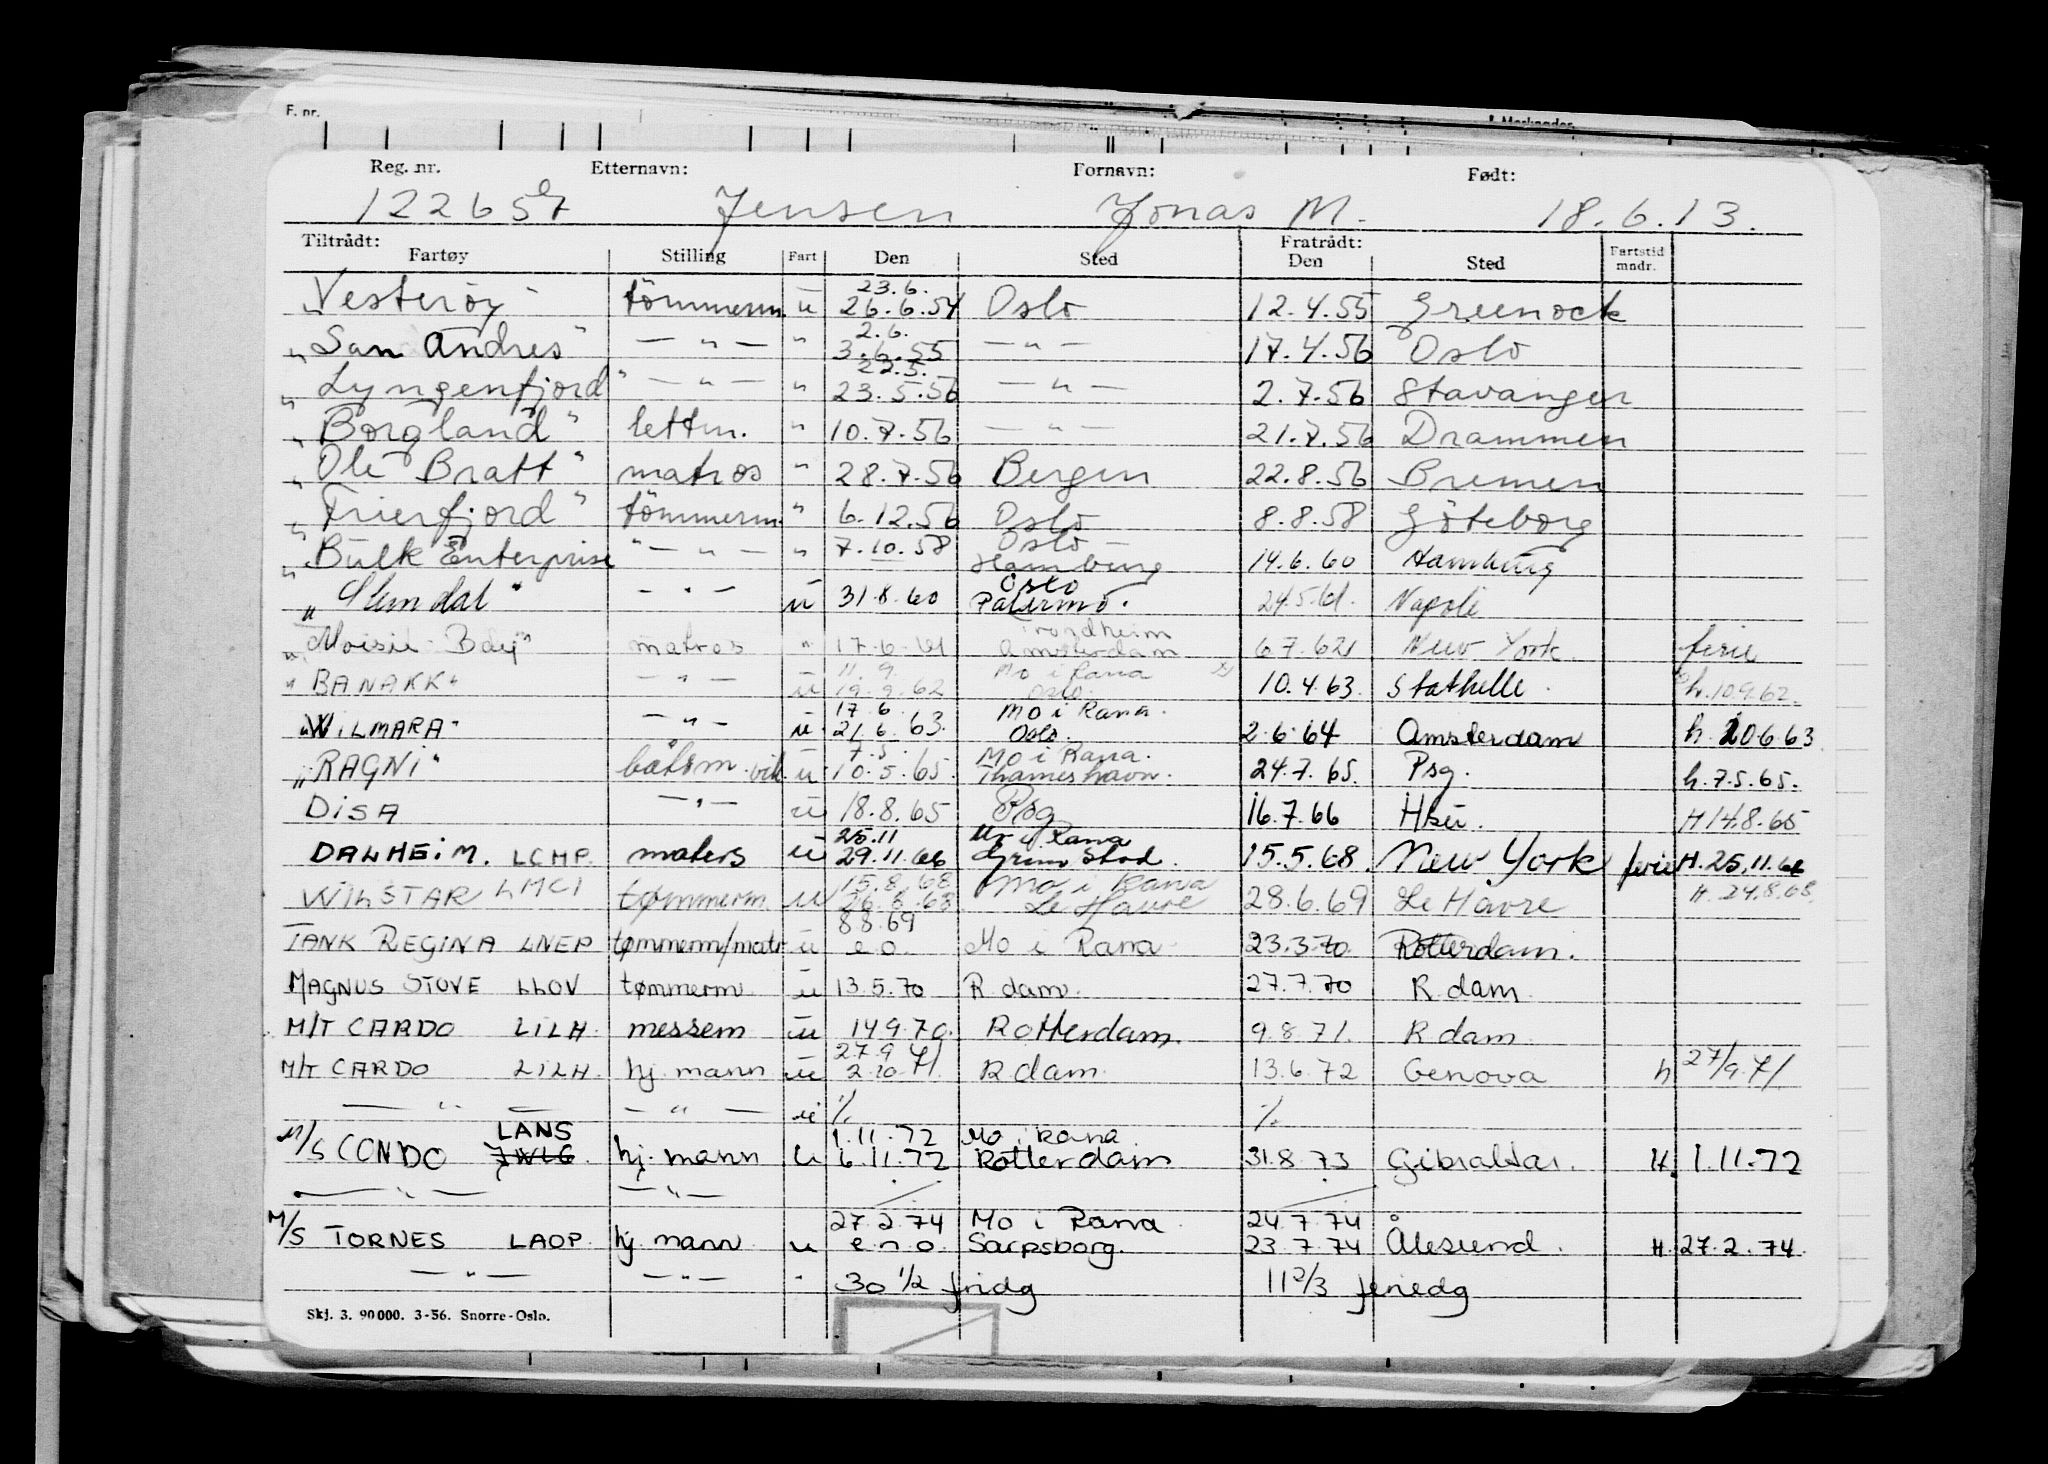 F. nr.
Merknader
Reg. nr. Etternavn: Fornavn: Født:
122657 Jensen Jonas M. 18.6.13.
Tiltrådt: Fratrådt:
Fartøy Stilling Fart Den Sted Den Sted Fartstid mndr.
23.6.
"Vesterøy" tömmerm. u 26.6.54 Oslo 12.4.55 Greenock
2.6.
"San Andres" — " — " 3.6.55 — " — 17.4.56 Oslo
22.5.
"Lyngenfjord" — " — " 23.5.56 — " — 2.7.56 Stavanger
"Borgland" lettm. " 10.7.56 — " — 21.7.56 Drammen
"Ole Bratt" matros " 28.7.56 Bergen 22.8.56 Bremen
"Frierfjord" tömmerm. " 6.12.56 Oslo 8.8.58 Göteborg
Oslo
"Bulk Enterprise" — " — " 7.10.58 Hamburg 14.6.60 Hamburg
Oslo
"Slemdal" — " — u 31.8.60 Palermo. 24.5.61. Napoli
Trondheim
Bay" matros " 17.6.61 Amsterdam 6.7.62 New York. ferie
11.9. Mo i Rana
"BANAKK" — " — u 19.9.62 Oslo. 10.4.63. Stathelle. h.10.9.62.
17.6. Mo i Rana.
"WILMARA" — " — u. 21.6.63. Oslo. 2.6.64 Amsterdam h. 10.6.63.
7.5. Mo i Rana.
"RAGNI" båtsm. vik. u 10.5.65. Thameshavn. 24.7.65. Psg. h.7.5.65.
DISA — " — u 18.8.65 Psg 16.7.66 H 14.8.65
25.11 Mo i Rana
DALHEIM. LCHP. matros u 29.11.66 Grimstad. 15.5.68. New York ferie H. 25.11.66
15.8.68 Mo i Rana
WILSTAR LMCI tømmerm. u 26.8.68 Le Havre 28.6.69 Le Havre H. 24.8.68.
8.8.69
TANK REGINA LNEP tømmerm/matr u e.o. Mo i Rana 23.3.70. Rotterdam.
MAGNUS STOVE LLOV tømmerm. u 13.5.70 R.dam. 27.7.70 R.dam.
M/T CARDO LILH. messem u 14.9.70. Rotterdam. 9.8.71. R.dam.
27.9
M/T CARDO LILH. hj.mann u 2.10.71. R.dam. 13.6.72 Genova h 27/9.71.
— " — — " — u ./. ./.
LANS 1.11.72 Mo i Rana.
M/S CONDO JWLG. hj.mann u 6.11.72 Rotterdam 31.8.73 Gibraltar. H. 1.11.72
— " — — " —
27.2.74 Mo i Rana. 24.7.74
M/S TORNES LAOP. hj.mann. u e.n.o. Sarpsborg. 23.7.74 Ålesund. H. 27.2.74.
— " — — " — " 30 1/2 fridg 11 2/3 feriedg
Skj. 3. 90 000. 3-56. Snorre-Oslo.